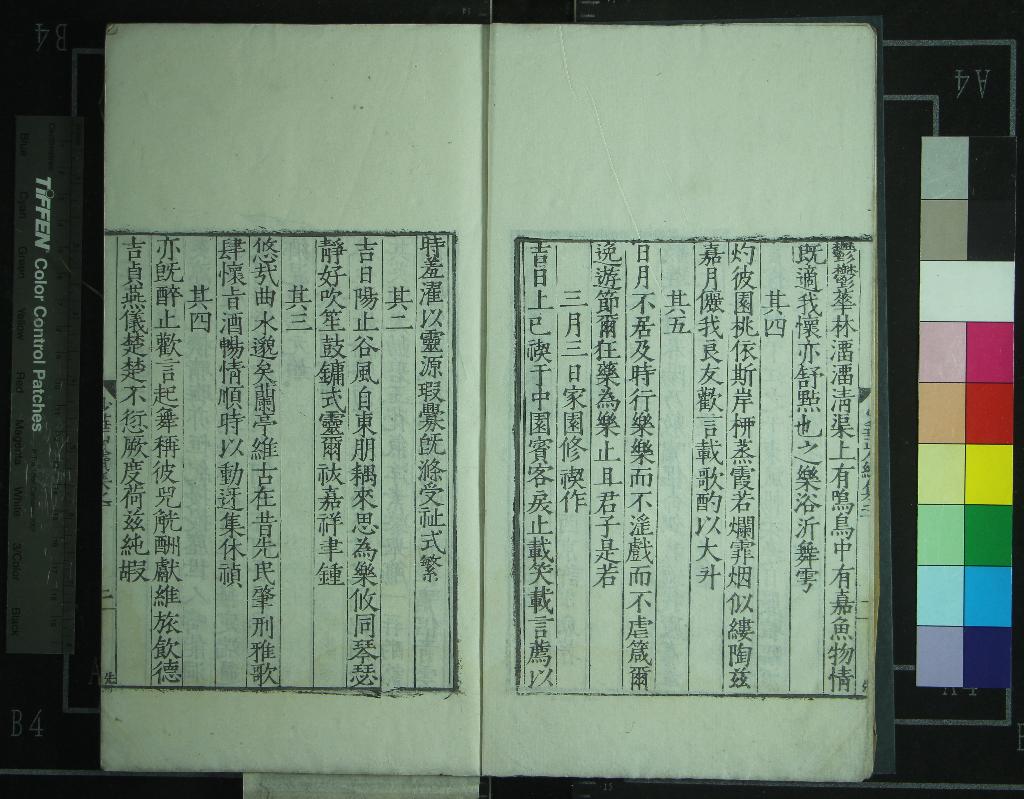 鬱鬱華林灀灀清渠上有鳴鳥中有嘉魚物情
既適我懷亦舒點也之樂浴沂舞雩
其四
灼彼園桃依斯岸桺蒸霞若爛霏烟似縷陶玆
嘉月儷我良友歡言載歌酌以大斗
其五
日月不居及時行樂樂而不淫戲而不虐箴爾
逸遊節爾狂藥為樂止且君子是若
三月三日家園修禊作
吉日上巳禊于中園賓客戾止載笑載言薦以
時羞濯以靈源瑕釁既滌受祉式繁
其二
吉日陽止谷風自東朋耦來思為樂攸同琴瑟
靜好吹笙鼓鏞式靈爾祓嘉祥聿鍾
其三
悠哉曲水邈矣蘭亭維古在昔先民肇刑雅歌
肆懷旨酒暢情順時以動迓集休禎
其四
亦既醉止歡言起舞稱彼兕觥酬獻維旅飲德
吉貞燕儀楚楚不愆厥度荷茲純嘏
二
TIFFEN Color Control Patches
Blue
Cyan
Green
Yellow
Red
Magenta
White
3/Color
Black
B4
A4
B4
A4